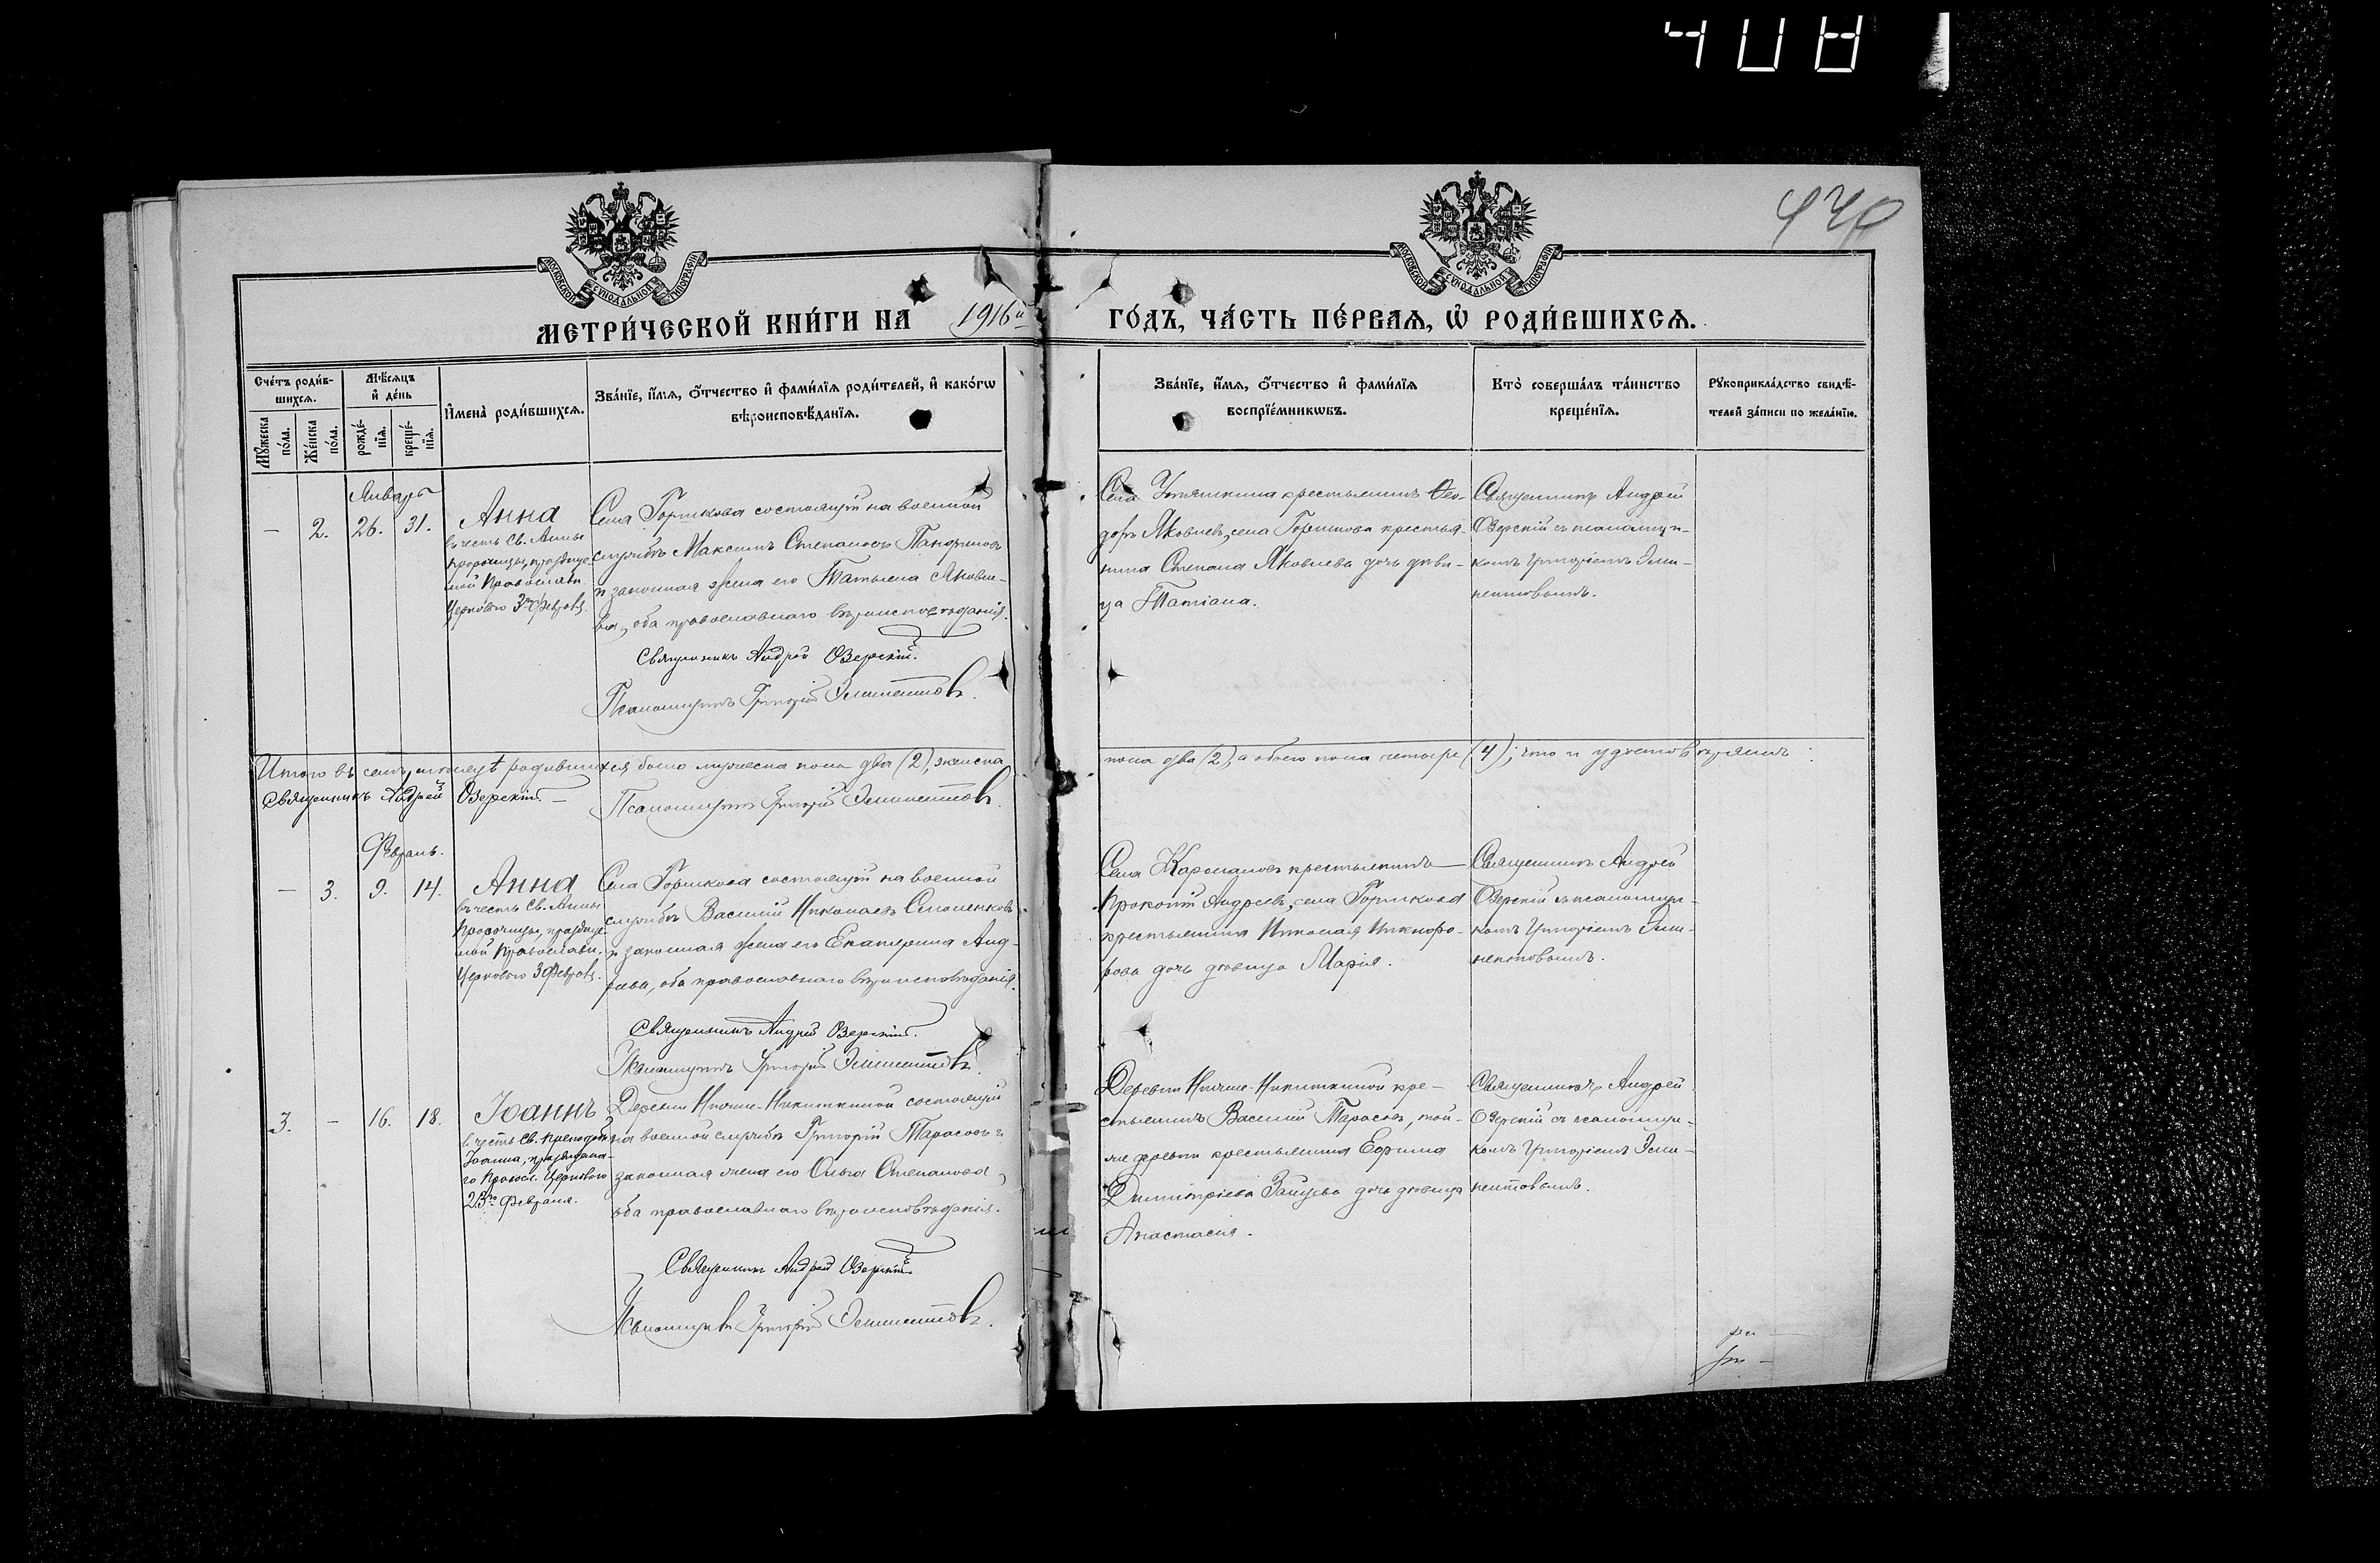 408
440
МОСКОВСКОЙ СѴНОДАЛЬНОЙ ТИПОГРАФІИ
МОСКОВСКОЙ СѴНОДАЛЬНОЙ ТИПОГРАФІИ
МЕТРИ́ЧЕСКОЙ КНИ́ГИ НА 1916й ГО́ДЪ, ЧА́СТЬ ПЕ́РВАѦ, Ѡ҆ РОДИ́ВШИХСѦ.
Сче́тъ роди́в-
шихсѧ.
Мꙋ́жеска
по́ла.
Же́нска
по́ла.
Мѣ́сѧцъ
и҆ де́нь
рожде́-
нїѧ.
креще́-
нїѧ.
И҆мена̀ роди́вшихсѧ.
Зва́нїе, и҆́мѧ, ѻ҆́тчество и҆ фами́лїѧ роди́телей, и҆ како́гѡ
вѣроисповѣ́данїѧ.
Зва́нїе, и҆́мѧ, ѻ҆́тчество и҆ фами́лїѧ
воспрїе́мникѡвъ.
Кто̀ соверша́лъ та́инство
креще́нїѧ.
Рꙋкоприкла́дство свидѣ́-
телей за́писи по жела́нїю.
Январь
— 2. 26. 31.
Анна
въ честь Св. Анны
пророчицы, празднуе-
мой Православн.
Церковью 3го февраля
Села Горшкова состоящій на военной
службѣ Максимъ Степановъ
и законная жена его Татьяна Яковле-
ва, оба православнаго вѣроисповѣданія.
Священникъ Андрей Озерскій.
Псаломщикъ Григорій
Села крестьянинъ Ѳео-
доръ Яковлевъ, села Горшкова крестья-
нина Степана Яковлева дочь дѣви-
ца Татіана.
Священникъ Андрей
Озерскій съ псаломщи-
комъ Григоріемъ
Итого въ семъ мѣсяцѣ родившихся было мужеска пола два (2), женска
пола два (2), а обоего пола четыре (4); что и удостовѣряемъ:
Священникъ Андрей Озерскій. —
Псаломщикъ Григорій
Февраль.
— 3. 9. 14.
Анна
въ честь Св. Анны
Пророчицы, празднуе-
мой Православн.
Церковью 3 февраля
Села Горшкова состоящій на военной
службѣ Василій Николаевъ
и законная жена его Екатерина Анд-
реева, оба православнаго вѣроисповѣданія.
Священникъ Андрей Озерскій.
Псаломщикъ Григорій
Села крестьянинъ —
Прокопій Андреевъ, села Горшкова
крестьянина Николая Никифо-
рова дочь дѣвица Марія.
Священникъ Андрей
Озерскій съ псаломщи-
комъ Григоріемъ
3. — 16. 18.
Іоаннъ
въ честь Св. Преподобн.
Іоанна, празднуема-
го Правосл. Церковью
23го Февраля.
Деревни состоящій
на военной службѣ Григорій Тарасовъ и
законная жена его Ольга Степанова,
оба православнаго вѣроисповѣданія.
Священникъ Андрей Озерскій.
Псаломщикъ Григорій
Деревни кре-
стьянинъ Василій Тарасовъ, той-
же деревни крестьянина Ефрема
Димитріева Зайцева дочь дѣвица
Анастасія.
Священникъ Андрей
Озерскій съ псаломщи-
комъ Григоріемъ